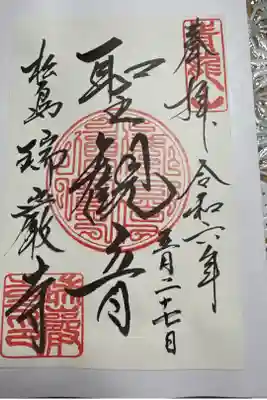 奉拝 令和六年
五月二十七日
聖観音
松島 瑞巌寺